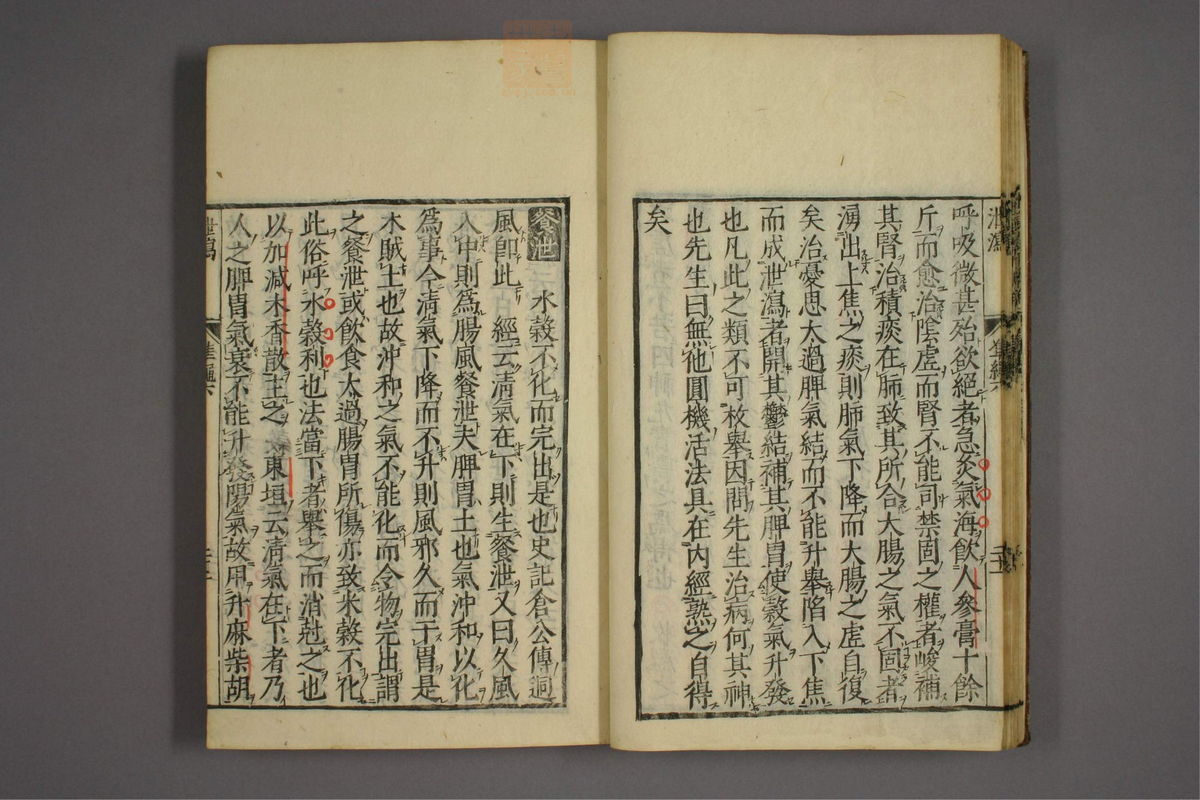 呼吸微甚殆欲絕者急灸氣海飲人參膏十餘
斤而愈治陰虛而腎不能司禁固之權者峻補
其腎治積痰在肺致其所合大腸之氣不固者
湧出上焦之痰則肺氣下降而大腸之虛自復
矣治憂思太過脾氣結而不能升舉陷入下焦
而成泄瀉者開其鬱結補其脾胃使穀氣升發
也凡此之類不可枚舉因問先生治病何其神
也先生曰無他圓機活法具在內經熟之自得
矣
飱泄 水穀不化而完出是也史記倉公傳迵
風即此 經云清氣在下則生飱泄又曰久風
入中則為腸風飱泄夫脾胃土也氣沖和以化
為事今清氣下降而不升則風邪久而干胃是
木賊土也故沖和之氣不能化而令物完出謂
之飱泄或飲食太過腸胃所傷亦致米穀不化
此俗呼水穀利也法當下者舉之而消尅之也
以加減木香散主之 東垣云清氣在下者乃
人之脾胃氣衰不能升發陽氣故用升麻柴胡